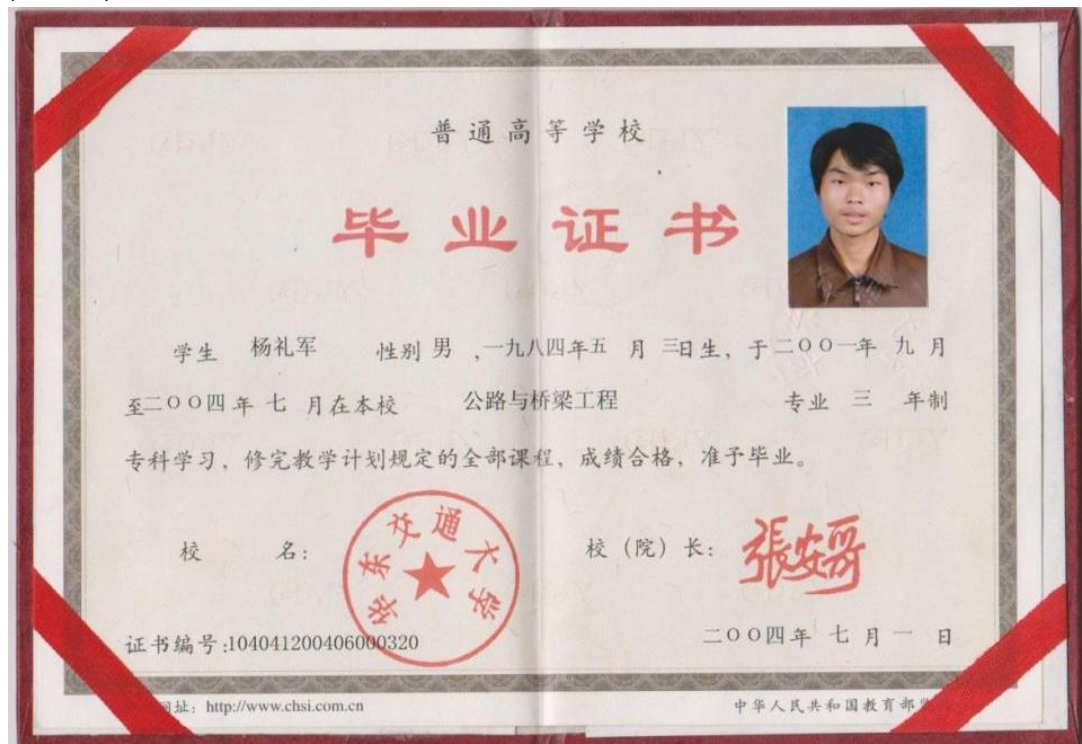 普通高等学校
毕业证书
学生 杨礼军 性别 男 ,一九八四年五 月 三日生, 于二〇〇一年 九 月
至二〇〇四 年 七 月在本校 公路与桥梁工程 专业 三 年制
专科学习, 修完教学计划规定的全部课程, 成绩合格, 准予毕业。
校 名: 华东交通大学 校 (院) 长: 張安哥
证书编号:104041200406000320 二〇〇四年 七 月 一 日
网址: http://www.chsi.com.cn 中华人民共和国教育部